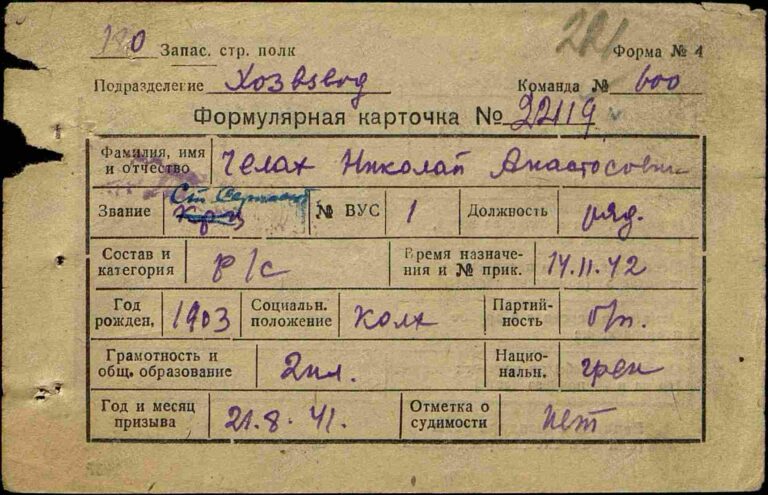 180 Запас. стр. полк 221 Форма № 4
Подразделение Хозвзвод Команда № 600
Формулярная карточка № 22119
Фамилия, имя и отчество Челах Николай Анастосович
Звание Ст Сержант Кр-ц № ВУС 1 Должность ряд.
Состав и категория р/с Время назначения и № прик. 14.11.42
Год рожден. 1903 Социальн. положение колх Партийность б/п.
Грамотность и общ. образование 2кл. Национальн. грек
Год и месяц призыва 21.8.41. Отметка о судимости нет